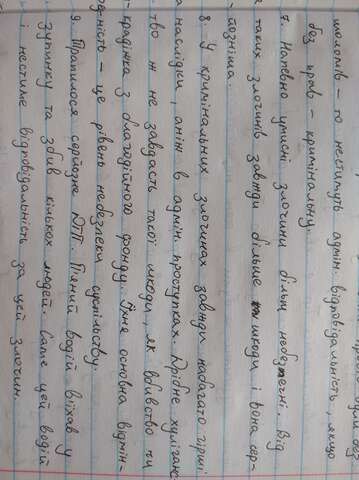 шоломів – то нестимуть адмін. відповідальність, якщо
без прав – кримінальну.
7. Напевно умисні злочини більш небезпечні. Від
таких злочинів завжди більше шкоди і вона сер-
йозніша.
8. У кримінальних злочинах завжди набагато гірші
наслідки, аніж в адмін. проступках. Дрібне хуліганс
тво ж не завдасть такої шкоди, як вбивство чи
крадіжка з благодійного фонду. Їхня основна відмін-
ність – це рівень небезпеки суспільству.
9. Трапилося серйозне ДТП. П'яний водій в'їхав у
зупинку та збив кількох людей. Саме цей водій
і нестиме відповідальність за цей злочин.